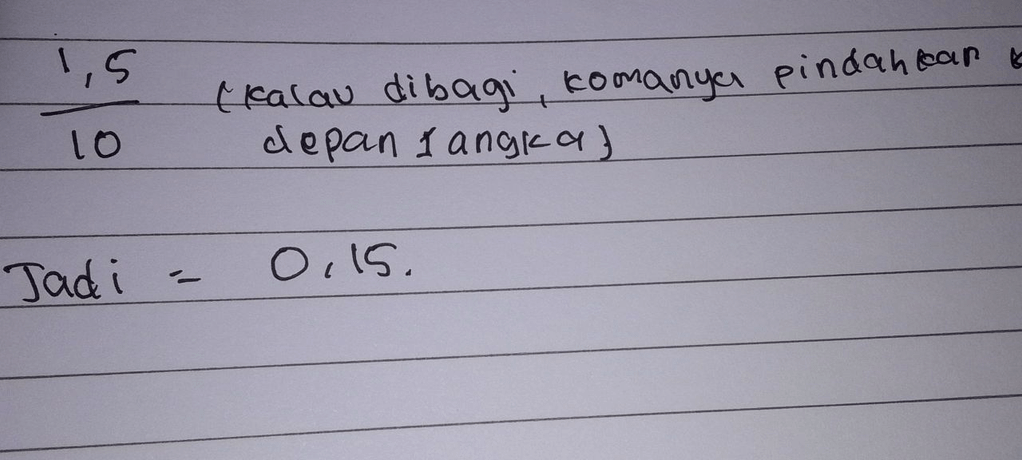 1,5
10
(kalau dibagi, komanya pindahkan
depan 1 angka)
Jadi = 0,15.